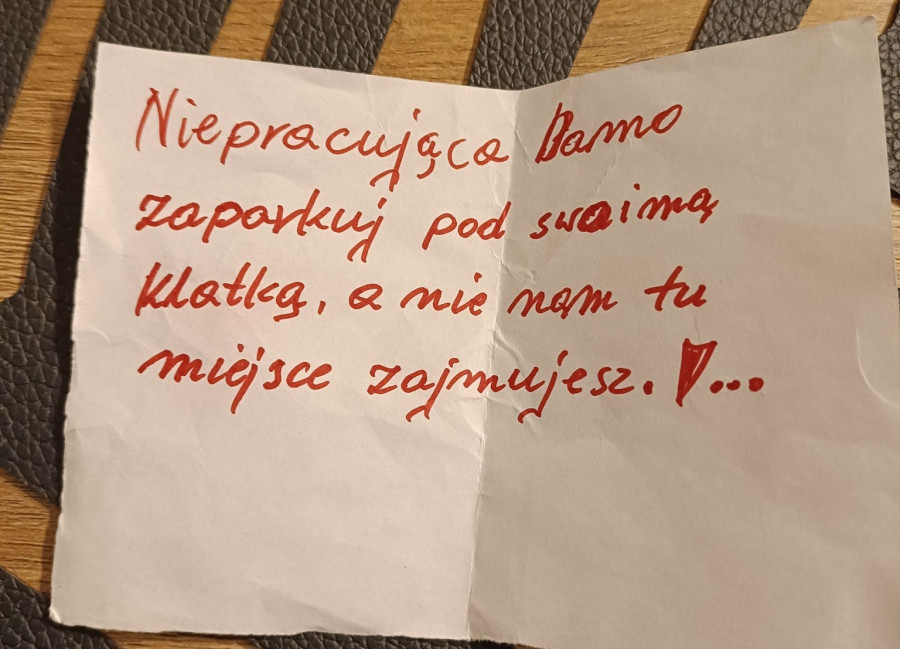 Niepracująca Damo
zaparkuj pod swaimą
klatką, a nie nam tu
miejsce zajmujesz. !...